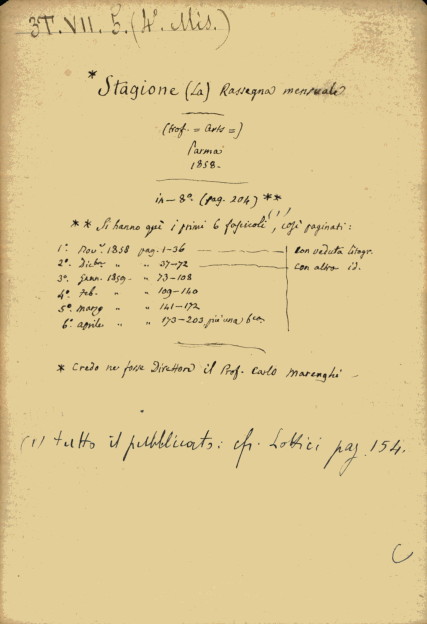 3T. VII. 5. (4º. Mis.)
* Stagione (La) Rassegna mensuale
Parma
1858-
in-8º. (pag. 204) **
** Si hanno qui i primi 6 fascicoli (1), così paginati:
1º. Nov. 1858 pag. 1-36 con veduta litogr.
2º. Dicbr. " " 37-72 con altra id.
3º. Genn. 1859- " 73-108
4º. Feb. " " 109-140
5º. Marzo " " 141-172
6º. aprile " " 173-203 più una bca.
* Credo ne fosse Direttore il Prof. Carlo Marenghi -
(1) tutto il pubblicato: cfr. Lottici pag. 154.